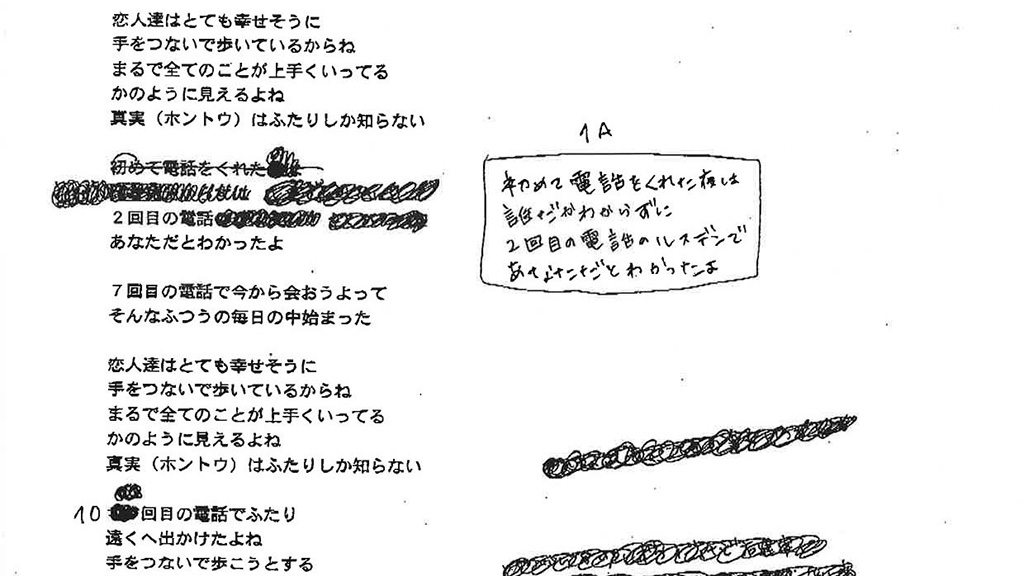 恋人達はとても幸せそうに
手をつないで歩いているからね
まるで全てのことが上手くいってる
かのように見えるよね
真実（ホントウ）はふたりしか知らない
初めて電話をくれた
２回目の電話
あなただとわかったよ
７回目の電話で今から会おうよって
そんなふつうの毎日の中始まった
恋人達はとても幸せそうに
手をつないで歩いているからね
まるで全てのことが上手くいってる
かのように見えるよね
真実（ホントウ）はふたりしか知らない
10 回目の電話でふたり
遠くへ出かけたよね
手をつないで歩こうとする
1A
初めて電話をくれた夜は
誰だかわからずに
2回目の電話のルスデンで
あなただとわかったよ